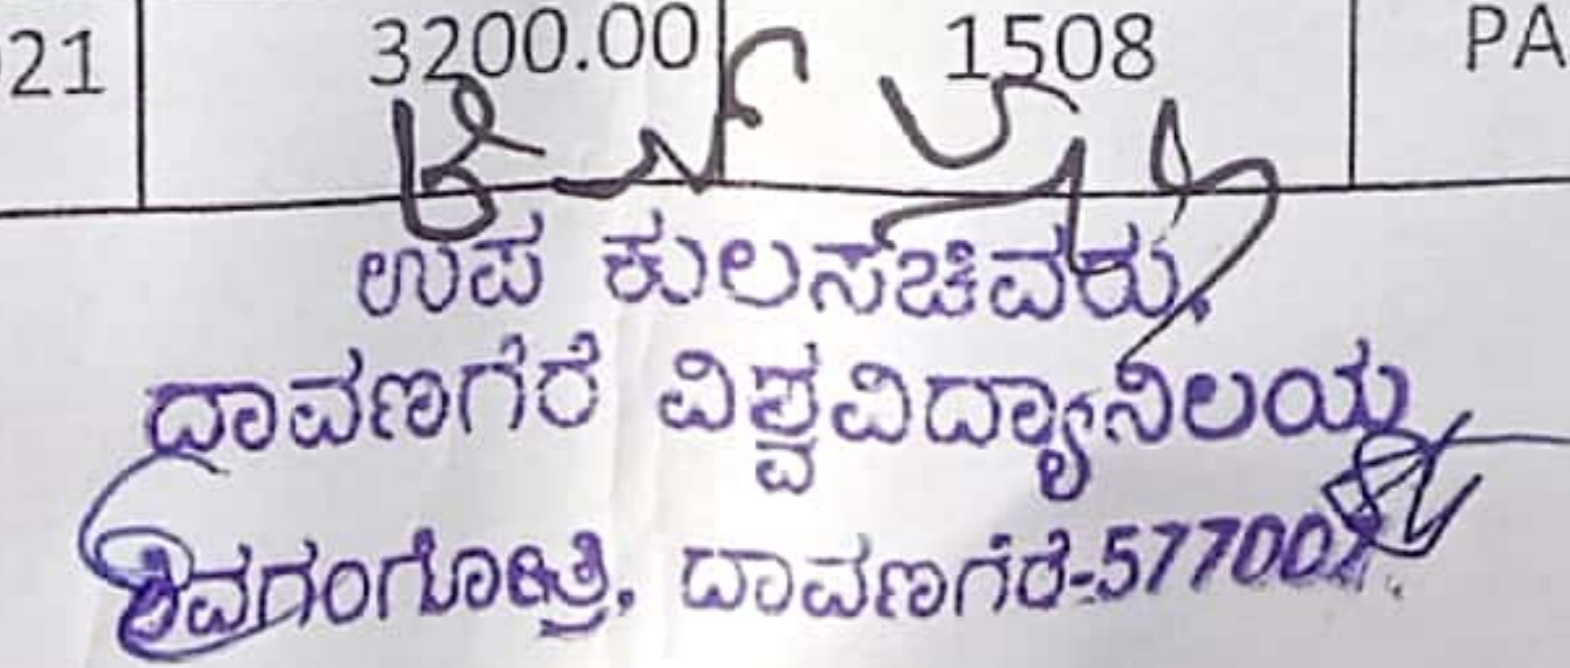 021 3200.00 1508 PA
ಉಪ ಕುಲಸಚಿವರು,
ದಾವಣಗೆರೆ ವಿಶ್ವವಿದ್ಯಾನಿಲಯ
ಶಿವಗಂಗೋತ್ರಿ, ದಾವಣಗೆರೆ-577007.